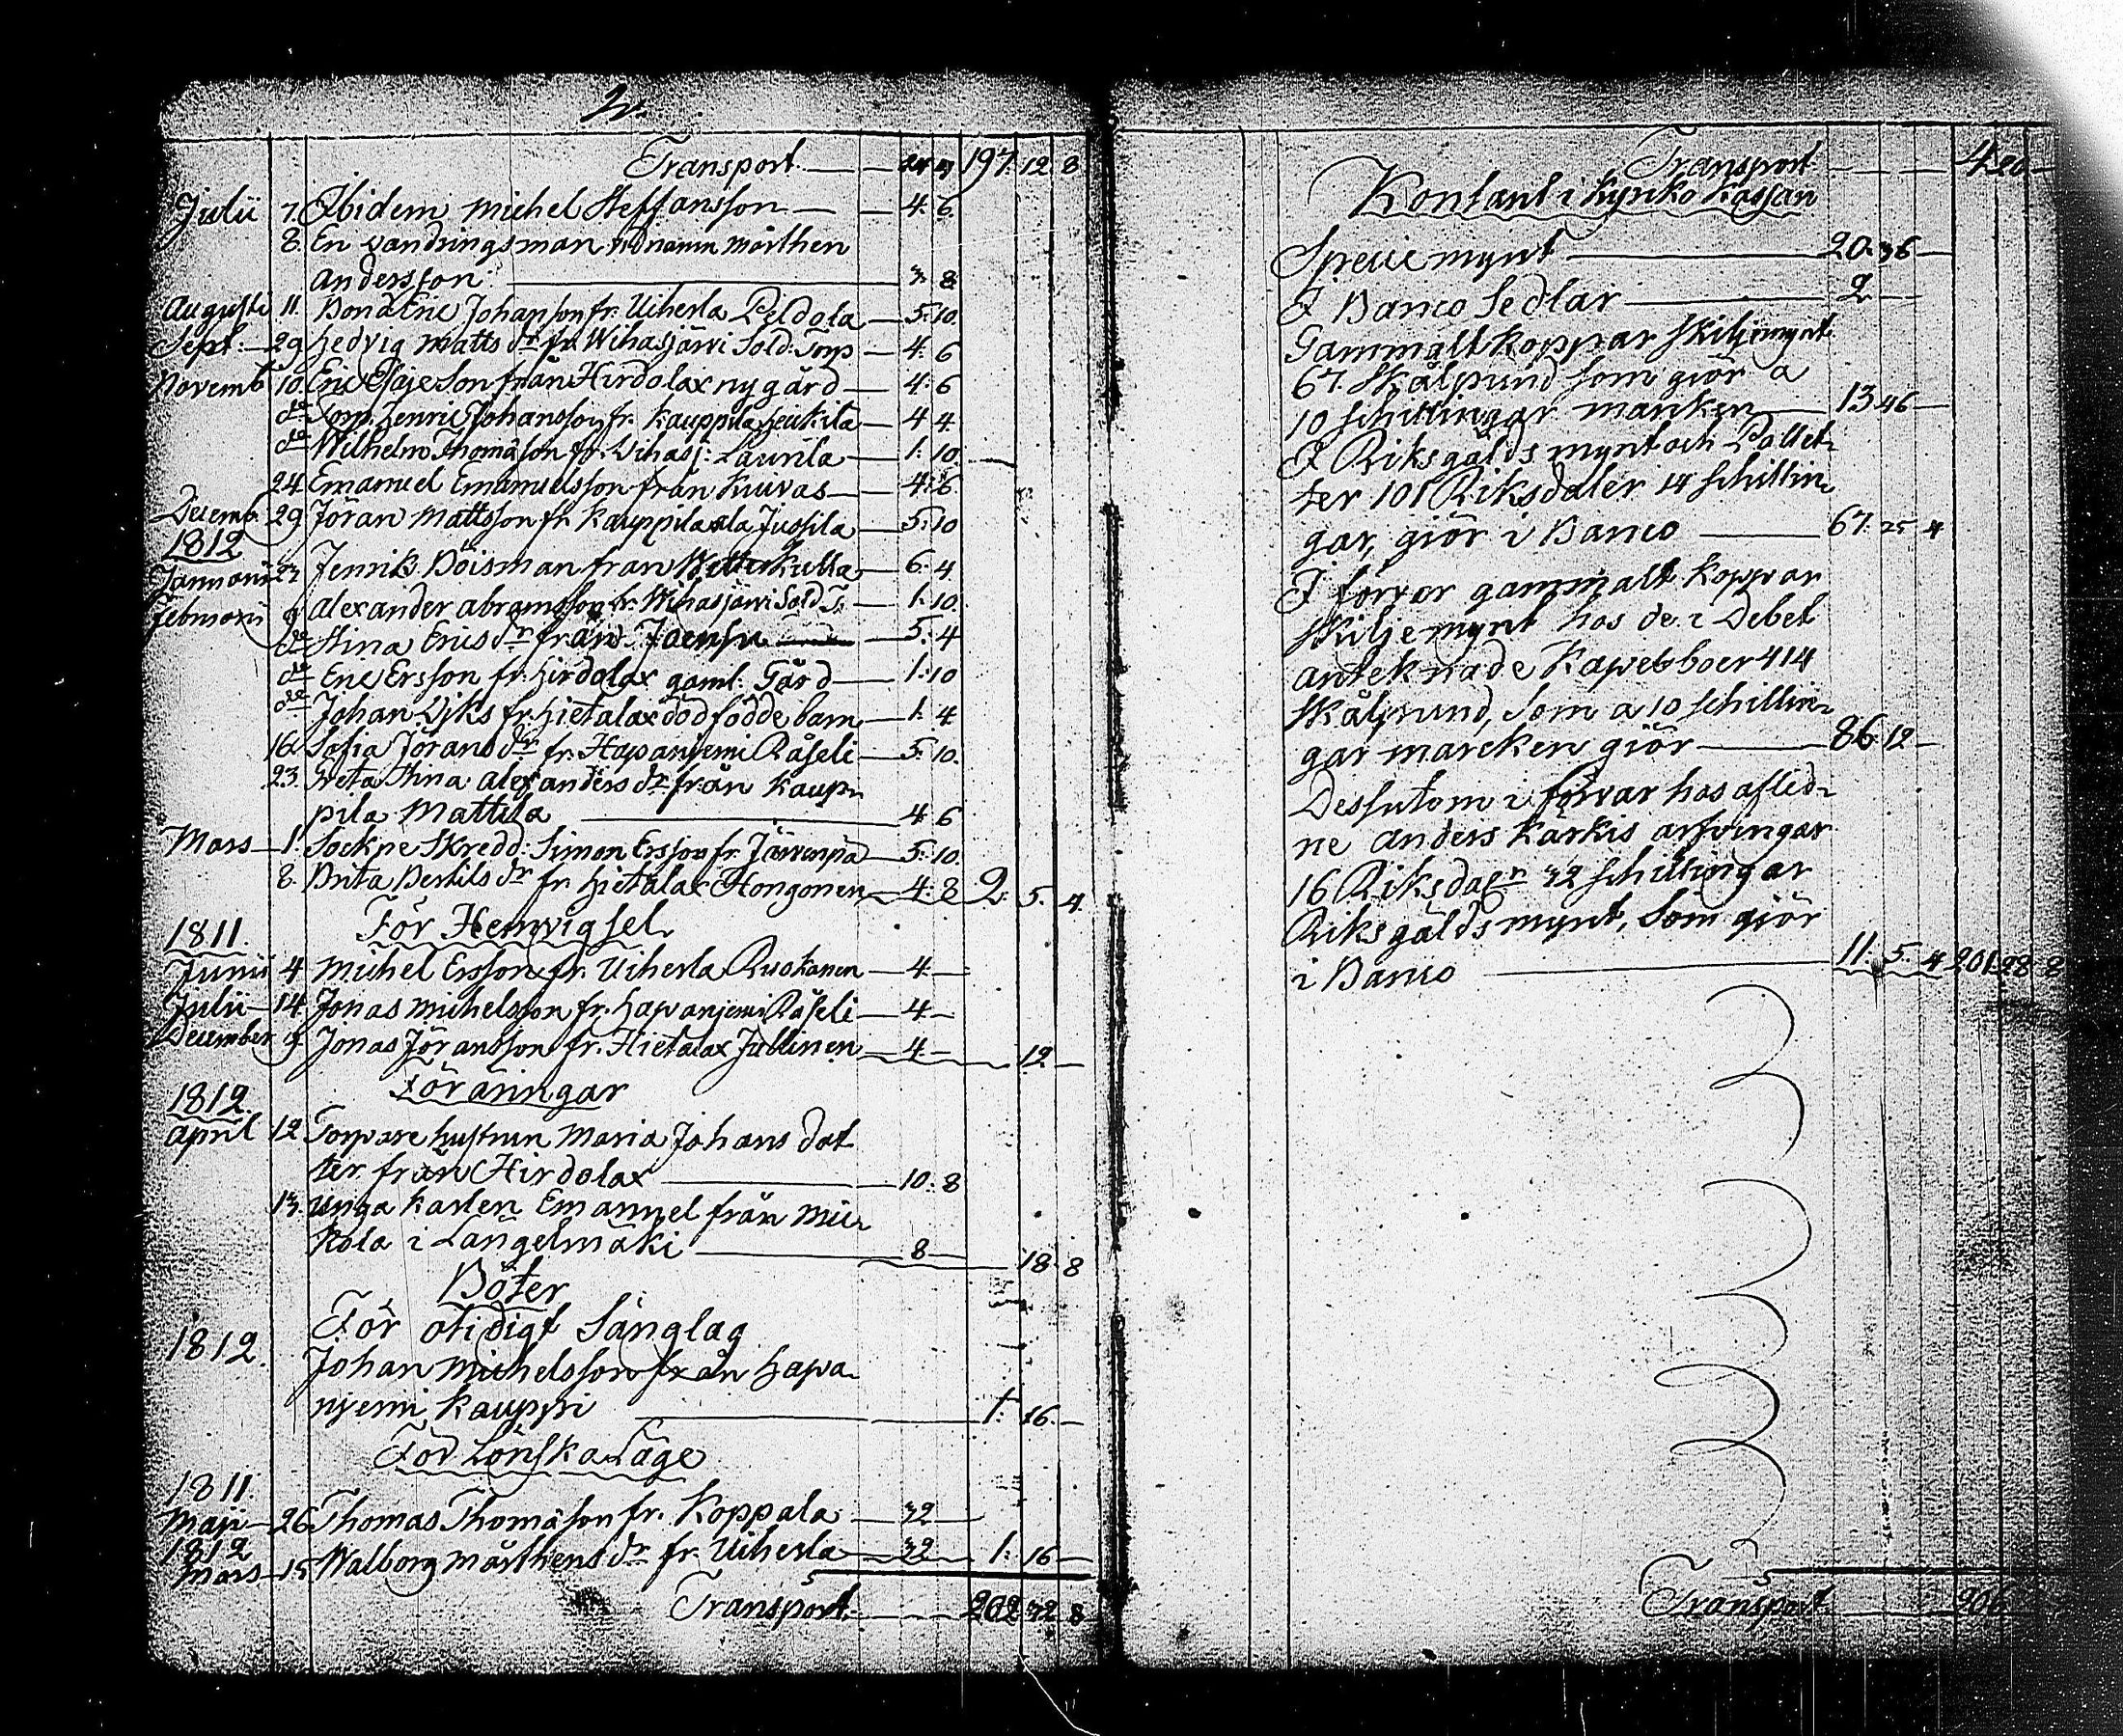 2.
Transport — 24 4 197. 12 8
Julii 7. Ibidem Michel Steffansson — 4. 6.
8. En vandringsman vid namn Mårthen
Andersson — 3 8
Augusti 11. Bond Eric Johansson fr. Uiherla Peldola — 5. 10.
Sept: 29 Hedvig Matts dr fr. Wihasjärvi Sold. Torp — 4. 6
Novemb. 10. Eric Esaje Son från Hirdolax ny gård — 4. 6
do Henric Johansson fr. Kauppila Heikilä — 4 4
do Wilhelm Thomasson fr. Wihasj: Laurila — 1. 10.
24 Emanuel Emanuelsson från Kuivas — 4. 6.
Decemb. 29 Jöran Mattsson fr. Kauppila ala Jussila — 5. 10
1812
Januarii Henrik Böisman från — 6. 4
Februarii 9 Alexander Abramsson fr. Wihasjärvi Sold. T. — 1. 10.
do Stina Erics dr från — 5. 4
do Eric Ersson fr. Hirdolax gaml. Gård — 1. 10
do Johan fr. Hietalax död födde barn — 1. 4
16. Sofia Jörans dr fr. Hapaniemi Räseli — 5. 10.
23. Greta Stina Alexanders dr från Kaup-
pila Mattila — 4 6
Mars 1. Sockne Skredd: Simon Ersson fr. Järvenpä — 5. 10.
8. Brita Bertils dr fr. Hietalax Hongonen — 4. 8 2. 5. 4.
För Hemvigsel.
1811.
Junii 4 Michel Ersson fr. Uiherla Ruokonen — 4 —
Julii 14 Jonas Michelsson fr. Hapanjemi Räseli — 4 —
December 9. Jonas Jöransson fr. Hietalax Jullinen — 4 — 12 —
Föräringar
1812.
April 12 Torpare hustrun Maria Johans dot
ter från Hirdolax — 10. 8
13. Unga Karlen Emanuel från Mic-
kola i Längelmäki — 8 — 18. 8
Böter
För otidigt Sänglag
1812. Johan Michelsson från Hapa-
njemi Kauppi — 1. 16. —
För Lönska Läge
1811.
Maji 26 Thomas Thomasson fr. Koppala — 32 —
1812
Mars 15 Walborg Mårthens dr fr. Uiherla — 32 — 1. 16 —
Transport — 202 32 8
Transport — 4 20 —
Kontant i Kyrko Kassan
Specie mynt — 20. 36 —
I Banco Sedlar — 2 —
Gammalt koppar Skiljemynt
67. Skålpund som giör a
10 schillingar marken — 13 46 —
I Riksgälds mynt och Pollet-
ter 101 Riksdaler 14 Schillin-
gar, giör i Banco — 67. 25 4
I förvar gammalt koppar
Skiljemynt hos de i Debet
anteknade Kapelboer 414
Skålpund, Som a 10 schillin-
gar marcken giör — 86. 12 —
Dessutom i förvar hos afled-
ne Anders Karkis arfvingar
16 Riksdaler 32 schillingar
Riksgälds mynt, Som giör
i Banco — 11. 5. 4 201 28 8
Transport — 206